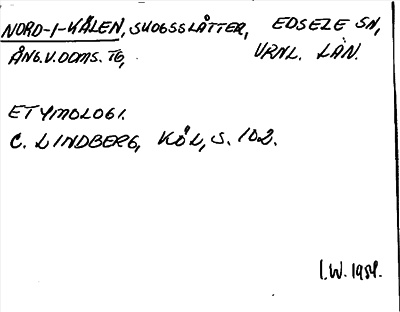 NORD-I-KÅLEN, SKOGSSLÅTTER, EDSELE SN,
ÅNG.V.DOMS.TG, VRNL. LÄN.
ETYMOLOGI.
C. LINDBERG, KÖL, S. 102.
I.W. 1954.